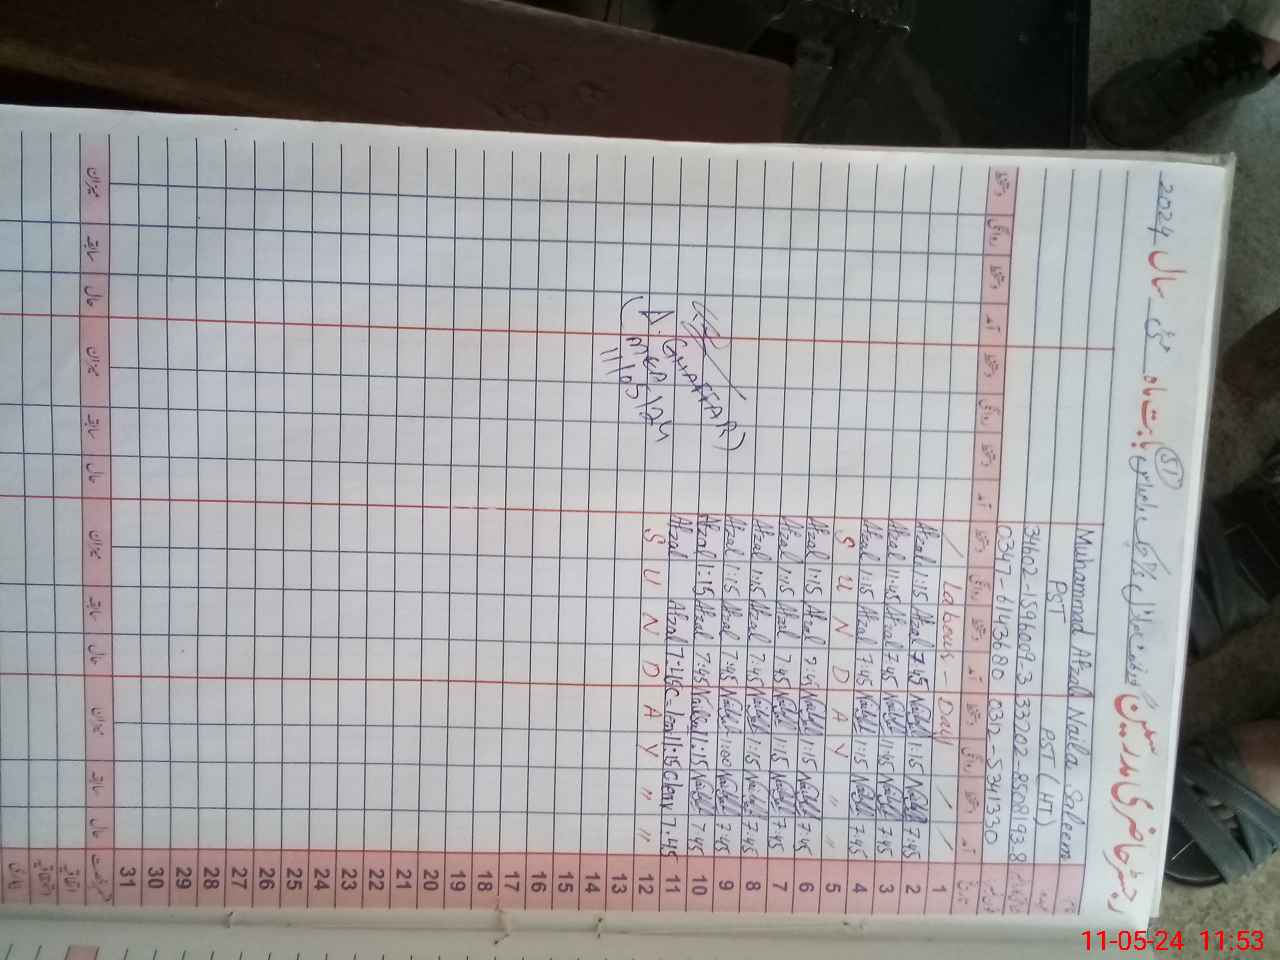 رجسٹر حاضری مدرسین
بابت ماہ مئی سال 2024
51
نام Naila Saleem Muhammad Afzal
عہدہ PST (HT) PST
33202-8508193-8 34602-1596009-3
0312-5341330 0347-6143680
تاریخ آمد دستخط روانگی دستخط آمد دستخط روانگی دستخط آمد دستخط روانگی دستخط آمد دستخط روانگی دستخط
1 / / Labour - Day /
2 7:45 Naila 1:15 Naila 7:45 Afzal 1:15 Afzal
3 7:45 Naila 11:45 Naila 7:45 Afzal 11:45 Afzal
4 7:45 Naila 1:15 Naila 7:45 Afzal 1:15 Afzal
5 " " Y A D N U S
6 7:45 Naila 1:15 Naila 7:45 Afzal 1:15 Afzal
7 7:45 Naila 1:15 Naila 7:45 Afzal 1:15 Afzal
8 7:45 Naila 1:15 Naila 7:45 Afzal 1:15 Afzal
9 7:45 Naila 1:00 Naila 7:45 Afzal 1:15 Afzal
10 7:45 Naila 1:15 Naila 7:45 Afzal 1:15 Afzal
11 7:45 7:45 Afzal Afzal
12 " " Y A D N U S
13
14
15
16
17
18
19
20
21
22
23
24
25
26
27
28
29
30
31
حال سابقہ میزان حال سابقہ میزان حال سابقہ میزان حال سابقہ میزان
(A. GHAFFAR)
MEA
11/05/24
11-05-24 11:53